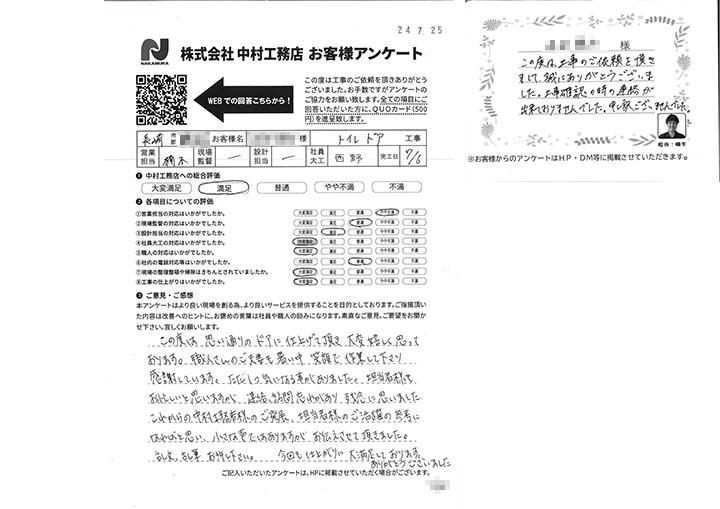 24.7.25
NAKAMURA
株式会社 中村工務店 お客様アンケート
WEBでの回答こちらから!
この度は工事のご依頼を頂きありがとう
ございました。お手数ですがアンケートへ
のご協力をお願い致します。全ての項目にご
回答いただいた方に、QUOカード(500
円)を進呈致します。
長崎 市 郡 お客様名 様 トイレドア 工事
営業担当 楠木 現場監督 ー 設計担当 ー 社員大工 西野 完工日 7/6
❶ 中村工務店への総合評価
大変満足 満足 普通 やや不満 不満
❷ 各項目についての評価
①営業担当の対応はいかがでしたか。 大変満足 満足 普通 やや不満 不満
②現場監督の対応はいかがでしたか。 大変満足 満足 普通 やや不満 不満
③設計担当の対応はいかがでしたか。 大変満足 満足 普通 やや不満 不満
④社員大工の対応はいかがでしたか。 大変満足 満足 普通 やや不満 不満
⑤職人の対応はいかがでしたか。 大変満足 満足 普通 やや不満 不満
⑥社内の電話対応等はいかがでしたか。 大変満足 満足 普通 やや不満 不満
⑦現場の整理整頓や掃除はきちんとされていましたか。 大変満足 満足 普通 やや不満 不満
⑧工事の仕上がりはいかがでしたか。 大変満足 満足 普通 やや不満 不満
❸ ご意見・ご感想
本アンケートはより良い現場を創る為、より良いサービスを提供することを目的としております。ご指摘頂い
た内容は改善へのヒントに、お褒めの言葉は社員や職人の励みになります。素直なご意見、ご要望をお聞か
せ下さい。宜しくお願いします。
この度は 思い通りのドアに仕上げて頂き 大変嬉しく思って
おります。職人さんのご夫妻も暑い中 笑顔で 作業して下さり
感謝しています。ただ1つ気になる事がありました。担当者様も
お忙しいと思いますが 連絡、訪問忘れがあり 残念に思いました
これからの中村工務店様のご発展、担当者様のご活躍の参考に
なればと思い、小さな事ではありますが お伝えさせて頂きました。
お許し下さい。 今回も仕上がりに 大満足しております。
ありがとうございました
ご記入いただいたアンケートは、HPに掲載させていただく場合がございます。
様
この度は、工事のご依頼を頂き
まして、誠にありがとうございま
した。工事確認の時の連絡が
出来ておりませんでした。申し訳ございませんでした。
担当:楠木
※お客様からのアンケートはHP・DM等に掲載させていただきます。